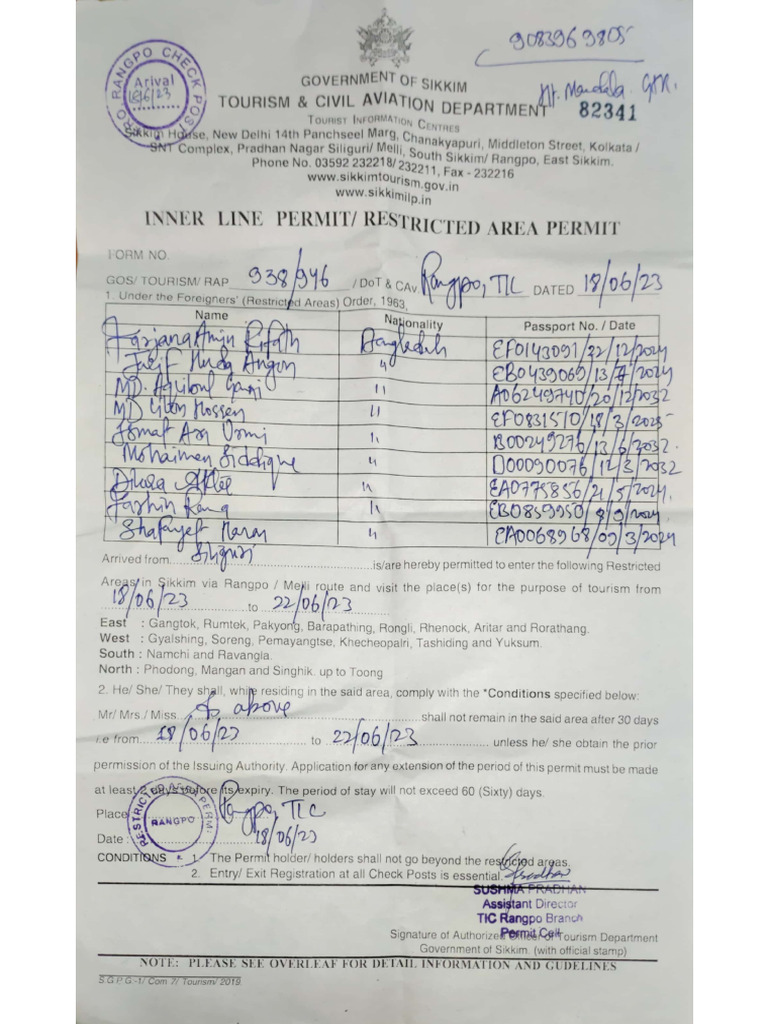 PRO RANGPO CHECK POST
Arival
18/6/23
9083969805
GOVERNMENT OF SIKKIM
TOURISM & CIVIL AVIATION DEPARTMENT
82341
TOURIST INFORMATION CENTRES
Sikkim House, New Delhi 14th Panchseel Marg, Chanakyapuri, Middleton Street, Kolkata /
SNT Complex, Pradhan Nagar Siliguri/ Melli, South Sikkim/ Rangpo, East Sikkim.
Phone No. 03592 232218/ 232211, Fax - 232216
www.sikkimtourism.gov.in
www.sikkimilp.in
INNER LINE PERMIT/ RESTRICTED AREA PERMIT
FORM NO.
GOS/ TOURISM/ RAP 938/946 / DoT & CAv Rangpo, TIC DATED 18/06/23
1. Under the Foreigners' (Restricted Areas) Order, 1963,
Name Nationality Passport No. / Date
Farjana Amin Rifath Bangladesh EF0143091/22/12/2024
Jarif Huda Angon " EB0439069/13/7/2024
MD. Aquibul Gani " A06249740/20/12/2032
MD Liton Hossen " EF0831570/18/3/2025
Ismat Ara Urmi " B00249276/13/6/2032.
Mohaimen Siddique " D00090076/12/3/2032
Dilara Afroz " EA0775856/21/5/2024.
" EB0859950/8/9/2024
" EA0068968/09/3/2024
Arrived from Siliguri is/are hereby permitted to enter the following Restricted
Areas in Sikkim via Rangpo / Melli route and visit the place(s) for the purpose of tourism from
18/06/23 to 22/06/23
East : Gangtok, Rumtek, Pakyong, Barapathing, Rongli, Rhenock, Aritar and Rorathang.
West : Gyalshing, Soreng, Pemayangtse, Khecheopalri, Tashiding and Yuksum.
South : Namchi and Ravangla.
North : Phodong, Mangan and Singhik. up to Toong
2. He/ She/ They shall, while residing in the said area, comply with the *Conditions specified below:
Mr/ Mrs./ Miss As above shall not remain in the said area after 30 days
i.e from 18/06/23 to 22/06/23 unless he/ she obtain the prior
permission of the Issuing Authority. Application for any extension of the period of this permit must be made
at least 2 days before its expiry. The period of stay will not exceed 60 (Sixty) days.
Place Rangpo, TIC
RESTRICTED AREA PERMIT
RANGPO
Date : 18/06/23
CONDITIONS 1. The Permit holder/ holders shall not go beyond the restricted areas.
2. Entry/ Exit Registration at all Check Posts is essential.
SUSHMA PRADHAN
Assistant Director
TIC Rangpo Branch
Permit Cell
Signature of Authorized Officer of Tourism Department
Government of Sikkim. (with official stamp)
NOTE: PLEASE SEE OVERLEAF FOR DETAIL INFORMATION AND GUDELINES
S.G.P.G.-1/ Com 7/ Tourism/ 2019.